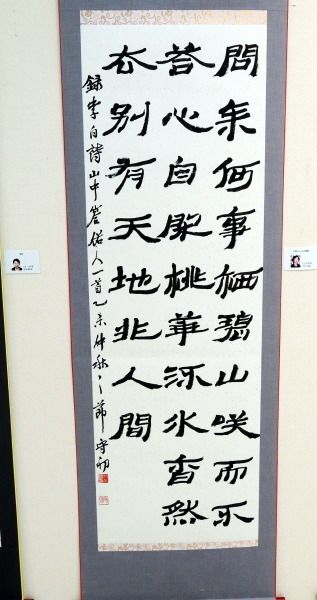 問余何事栖碧山咲而不
荅心自閑桃華流水杳然
去別有天地非人間
録李白詩山中答俗人一首乙未仲秋之節守初